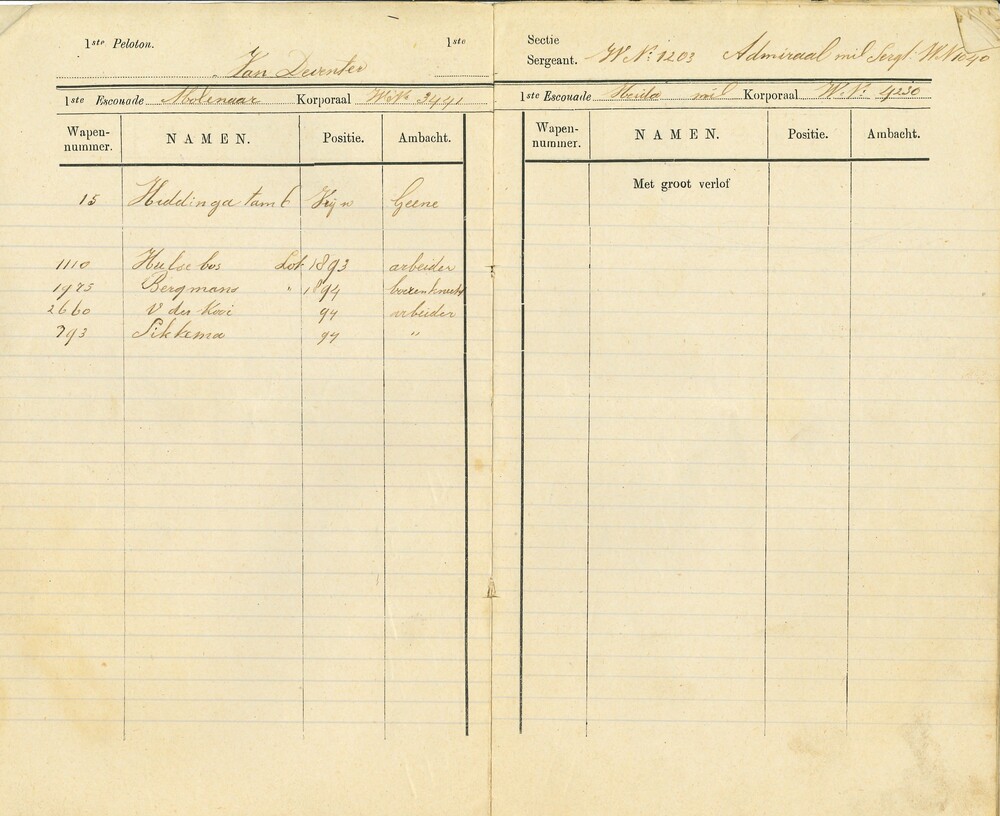 1ste Peloton. 1ste
Van Deventer
1ste Escouade Molenaar Korporaal W.No 3441
Wapen-nummer. NAMEN. Positie. Ambacht.
15 Hiddinga tamb Vrijw Geene
1110 Hulsebos Lot. 1893 arbeider
1975 Bergmans " 1894 boerenknecht
2660 V der Kooi 94 arbeider
793 Sikkema 94 "
Sectie
Sergeant. W No: 1203 Admiraal mil Sergt. W.N 1040
1ste Escouade mil Korporaal W. No: 4230
Wapen-nummer. NAMEN. Positie. Ambacht.
Met groot verlof